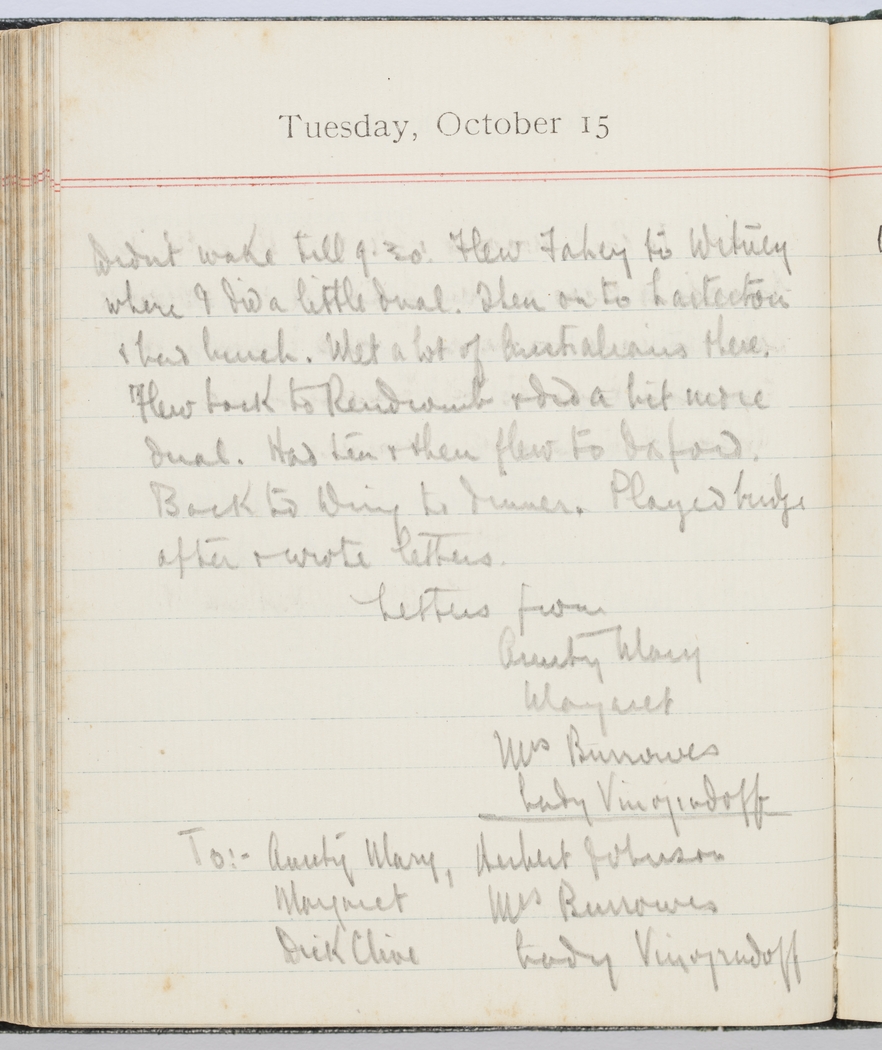 Tuesday, October 15
Didn't wake till 9.30. Flew Fahey to Witney
where I did a little dual. Then on to
& had lunch. Met a lot of Australians there.
Flew back to Rendcomb & did a bit more
dual. Had tea & then flew to Oxford.
Back to Wing to dinner. Played bridge
after & wrote letters.
Letters from
Aunty Mary
Margaret
Mrs Burrowes
Lady Vinogradoff
To:- Aunty Mary, Herbert Johnson
Margaret Mrs Burrowes
Dick Clive Lady Vinogradoff